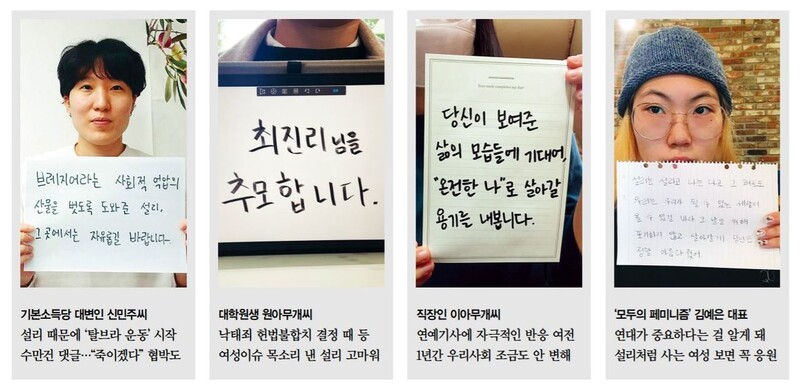 브래지어라는 사회적 억압의
산물을 벗도록 도와준 설리.
그곳에서는 자유롭길 바랍니다.
기본소득당 대변인 신민주씨
설리 때문에 ‘탈브라 운동’ 시작
수만건 댓글…“죽이겠다” 협박도
최진리님을
추모합니다.
대학원생 원아무개씨
낙태죄 헌법불합치 결정 때 등
여성이슈 목소리 낸 설리 고마워
당신이 보여준
삶의 모습들에 기대어,
"온전한 나"로 살아갈
용기를 내봅니다.
직장인 이아무개씨
연예기사에 자극적인 반응 여전
1년간 우리사회 조금도 안 변해
설리는 설리고 나는 나고 그 자체로
우리는 우리가 될 수 있는 세상이
올 수 있길 바라
포기하지 않고 살아갈게
정말
‘모두의 페미니즘’ 김예은 대표
연대가 중요하다는 걸 알게 돼
설리처럼 사는 여성 보면 꼭 응원